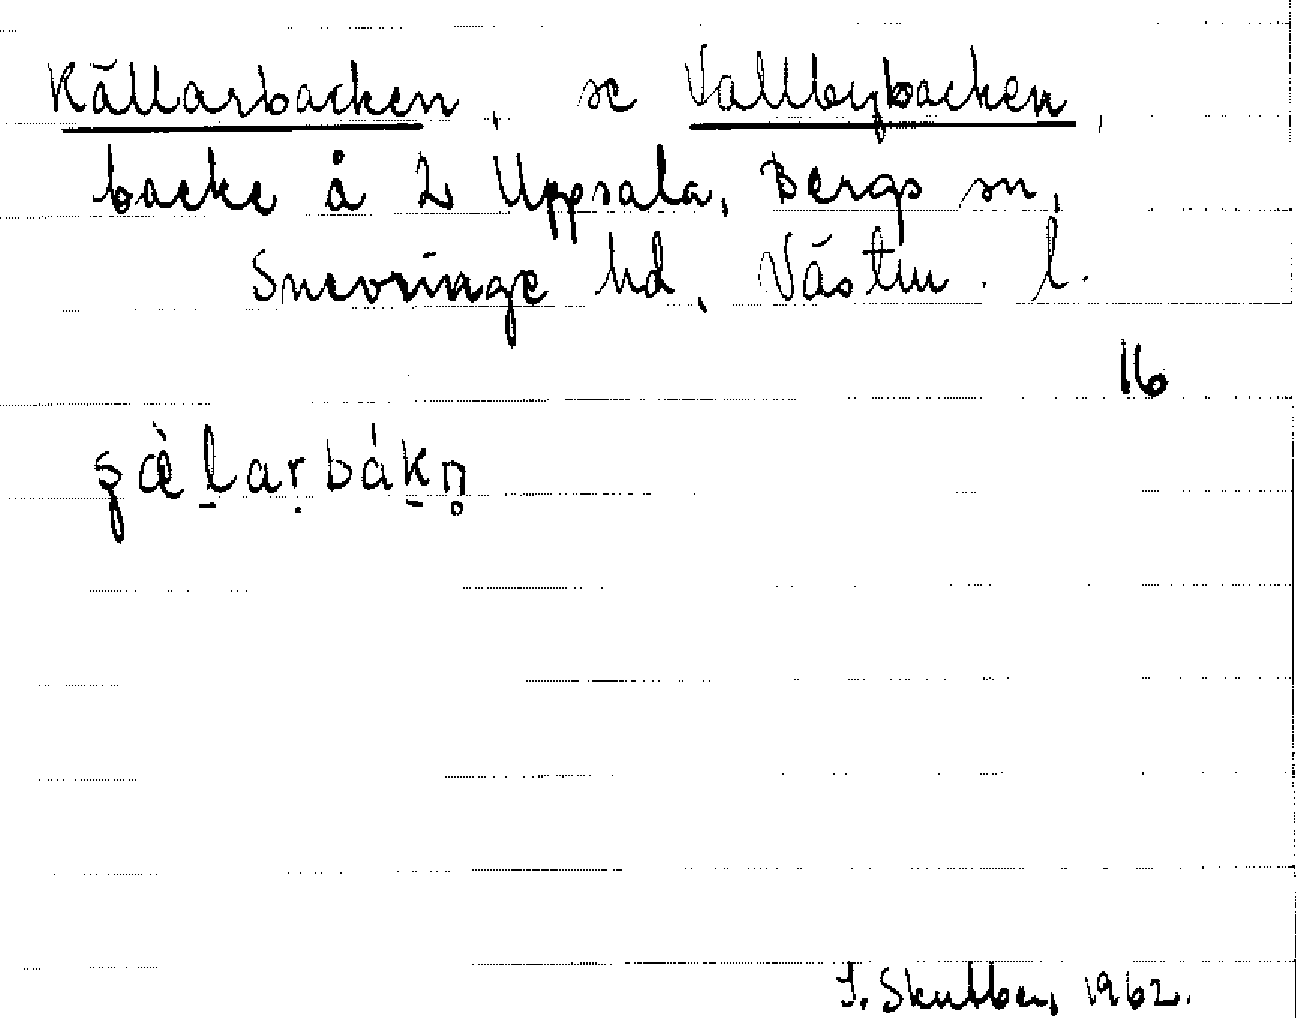 Källarbacken, se Vallbybacken,
backe å L Uppsala, Bergs sn,
Snevringe hd, Västm. l.
16
ɕæ̀l̠aṛbák̠n̥
1962.